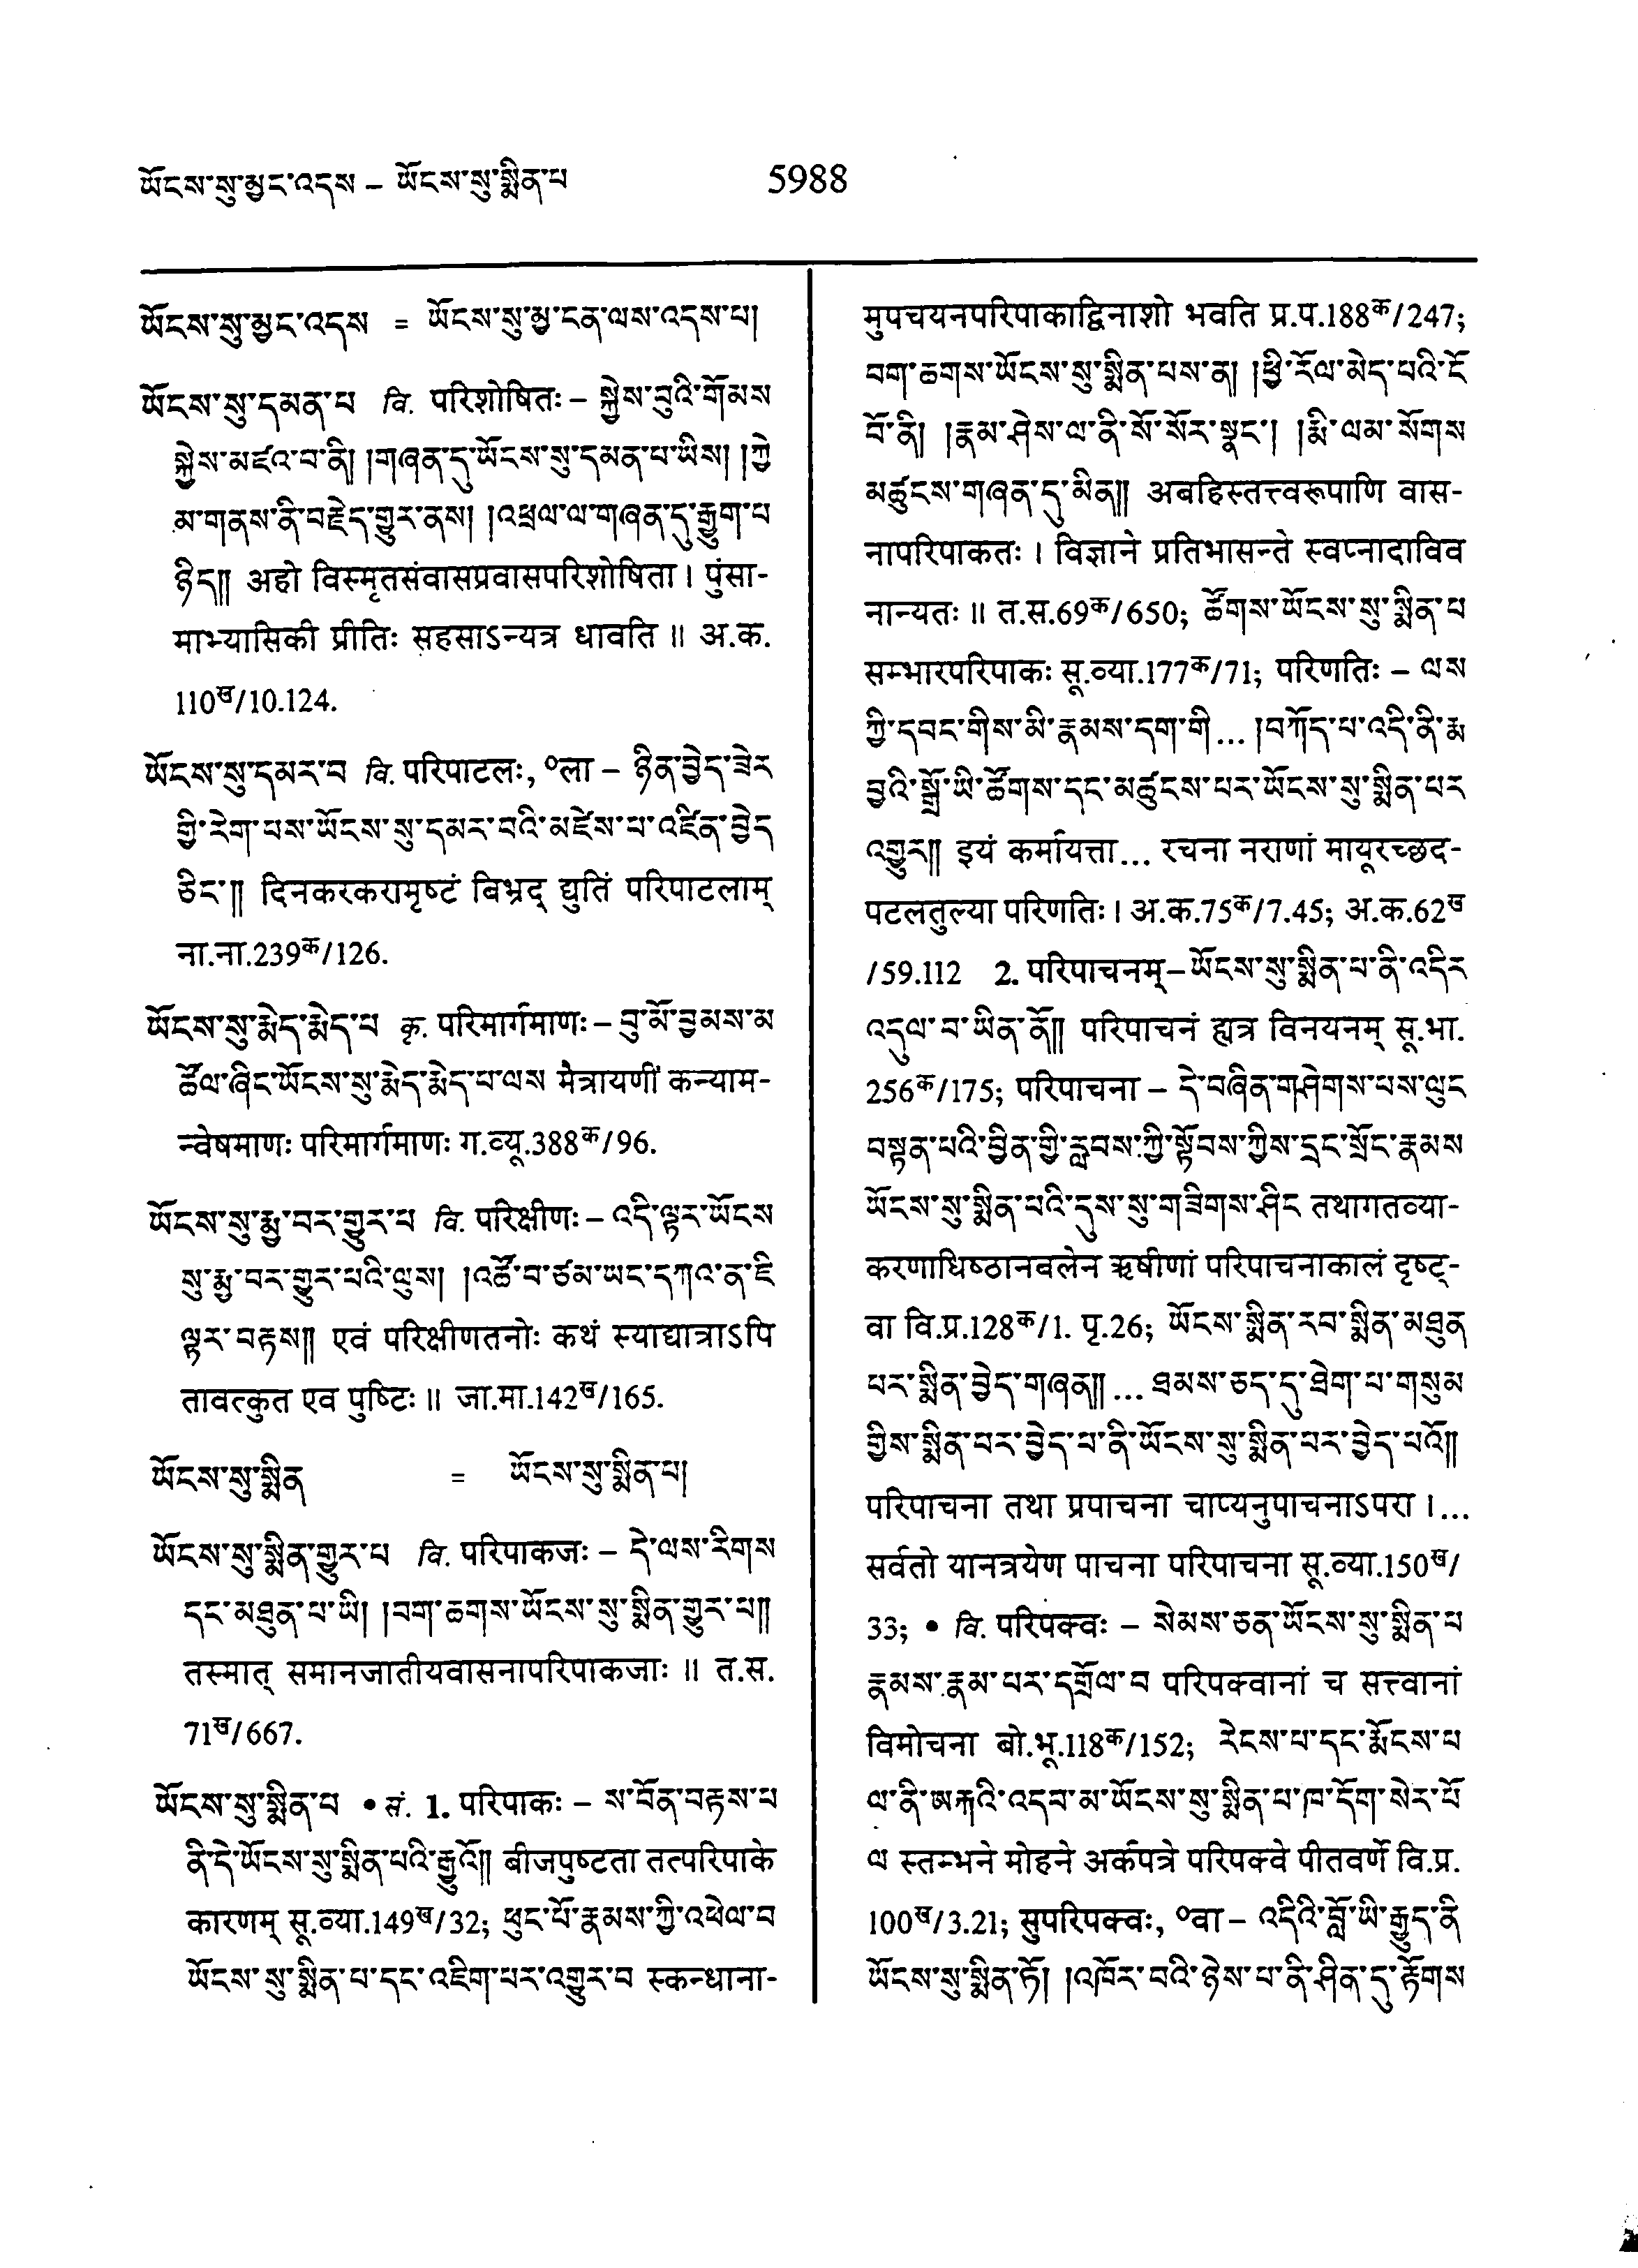 ཡོངས་སུ་མྱང་འདས – ཡོངས་སུ་སྨིན་པ
5988
ཡོངས་སུ་མྱང་འདས = ཡོངས་སུ་མྱ་ངན་ལས་འདས་པ།
ཡོངས་སུ་དམན་པ वि. परिशोषितः – སྐྱེས་བུའི་གོམས
སྐྱེས་མཛའ་བ་ནི། །གཞན་དུ་ཡོངས་སུ་དམན་པ་ཡིས། །ཀྱེ
མ་གནས་ནི་བརྗེད་གྱུར་ནས། །འཕྲལ་ལ་གཞན་དུ་རྒྱུག་པ
ཉིད༎ अहो विस्मृतसंवासप्रवासपरिशोषिता । पुंसा-
माभ्यासिकी प्रीतिः सहसाऽन्यत्र धावति ॥ अ.क.
110ख/10.124.
ཡོངས་སུ་དམར་བ वि. परिपाटलः, °ला – ཉིན་བྱེད་ཟེར
གྱི་རེག་པས་ཡོངས་སུ་དམར་བའི་མཛེས་པ་འཛིན་བྱེད
ཅིང་༎ दिनकरकरामृष्टं विभ्रद् द्युतिं परिपाटलाम्
ना.ना.239क/126.
ཡོངས་སུ་རྨེད་རྨེད་པ कृ. परिमार्गमाणः – བུ་མོ་བྱམས་མ
ཚོལ་ཞིང་ཡོངས་སུ་རྨེད་རྨེད་པ་ལས मैत्रायणीं कन्याम-
न्वेषमाणः परिमार्गमाणः ग.व्यू.388क/96.
ཡོངས་སུ་རྨྱ་བར་གྱུར་པ वि. परिक्षीणः – འདི་ལྟར་ཡོངས
སུ་རྨྱ་བར་གྱུར་པའི་ལུས། །འཚོ་བ་ཙམ་ཡང་དཀའ་ན་ཇི
ལྟར་བརྟས༎ एवं परिक्षीणतनोः कथं स्याद्यात्राऽपि
तावत्कुत एव पुष्टिः ॥ जा.मा.142ख/165.
ཡོངས་སུ་སྨིན = ཡོངས་སུ་སྨིན་པ།
ཡོངས་སུ་སྨིན་གྱུར་པ वि. परिपाकजः – དེ་ལས་རིགས
དང་མཐུན་པ་ཡི། །བག་ཆགས་ཡོངས་སུ་སྨིན་གྱུར་པ༎
तस्मात् समानजातीयवासनापरिपाकजाः ॥ त.स.
71ख/667.
ཡོངས་སུ་སྨིན་པ • सं. 1. परिपाकः – ས་བོན་བརྟས་པ
ནི་དེ་ཡོངས་སུ་སྨིན་པའི་རྒྱུའོ༎ बीजपुष्टता तत्परिपाके
कारणम् सू.व्या.149ख/32; ཕུང་པོ་རྣམས་ཀྱི་འཕེལ་བ
ཡོངས་སུ་སྨིན་པ་དང་འཇིག་པར་འགྱུར་བ स्कन्धाना-
मुपचयनपरिपाकाद्विनाशो भवति प्र.प.188क/247;
བག་ཆགས་ཡོངས་སུ་སྨིན་པས་ན། །ཕྱི་རོལ་མེད་པའི་ངོ
བོ་ནི། །རྣམ་ཤེས་ལ་ནི་སོ་སོར་སྣང་། །རྨི་ལམ་སོགས
མཚུངས་གཞན་དུ་མིན༎ अबहिस्तत्त्वरूपाणि वास-
नापरिपाकतः । विज्ञाने प्रतिभासन्ते स्वप्नादाविव
नान्यतः ॥ त.स.69क/650; ཚོགས་ཡོངས་སུ་སྨིན་པ
सम्भारपरिपाकः सू.व्या.177क/71; परिणतिः – ལས
ཀྱི་དབང་གིས་མི་རྣམས་དག་གི... །བཀོད་པ་འདི་ནི་རྨ
བྱའི་སྒྲོ་ཡི་ཚོགས་དང་མཚུངས་པར་ཡོངས་སུ་སྨིན་པར
འགྱུར༎ इयं कर्मायत्ता... रचना नराणां मायूरच्छद-
पटलतुल्या परिणतिः । अ.क.75क/7.45; अ.क.62ख
/59.112 2. परिपाचनम्–ཡོངས་སུ་སྨིན་པ་ནི་འདིར
འདུལ་བ་ཡིན་ནོ༎ परिपाचनं ह्यत्र विनयनम् सू.भा.
256क/175; परिपाचना – དེ་བཞིན་གཤེགས་པས་ལུང
བསྟན་པའི་བྱིན་གྱི་རླབས་ཀྱི་སྟོབས་ཀྱིས་དྲང་སྲོང་རྣམས
ཡོངས་སུ་སྨིན་པའི་དུས་སུ་གཟིགས་ཤིང तथागतव्या-
करणाधिष्ठानवलेन ऋषीणां परिपाचनाकालं दृष्ट्-
वा वि.प्र.128क/1. पृ.26; ཡོངས་སྨིན་རབ་སྨིན་མཐུན
པར་སྨིན་བྱེད་གཞན༎ ... ཐམས་ཅད་དུ་ཐེག་པ་གསུམ
གྱིས་སྨིན་པར་བྱེད་པ་ནི་ཡོངས་སུ་སྨིན་པར་བྱེད་པའོ༎
परिपाचना तथा प्रपाचना चाप्यनुपाचनाऽपरा ।...
सर्वतो यानत्रयेण पाचना परिपाचना सू.व्या.150ख/
33; • वि. परिपक्वः – སེམས་ཅན་ཡོངས་སུ་སྨིན་པ
རྣམས་རྣམ་པར་དགྲོལ་བ परिपक्वानां च सत्त्वानां
विमोचना बो.भू.118क/152; རེངས་པ་དང་རྨོངས་པ
ལ་ནི་ཨརྐའི་འདབ་མ་ཡོངས་སུ་སྨིན་པ་ཁ་དོག་སེར་པོ
ལ स्तम्भने मोहने अर्कपत्रे परिपक्वे पीतवर्णे वि.प्र.
100ख/3.21; सुपरिपक्वः, °वा – འདིའི་བློ་ཡི་རྒྱུད་ནི
ཡོངས་སུ་སྨིན་ཏོ། །འཁོར་བའི་ཉེས་པ་ནི་ཤིན་དུ་རྟོགས